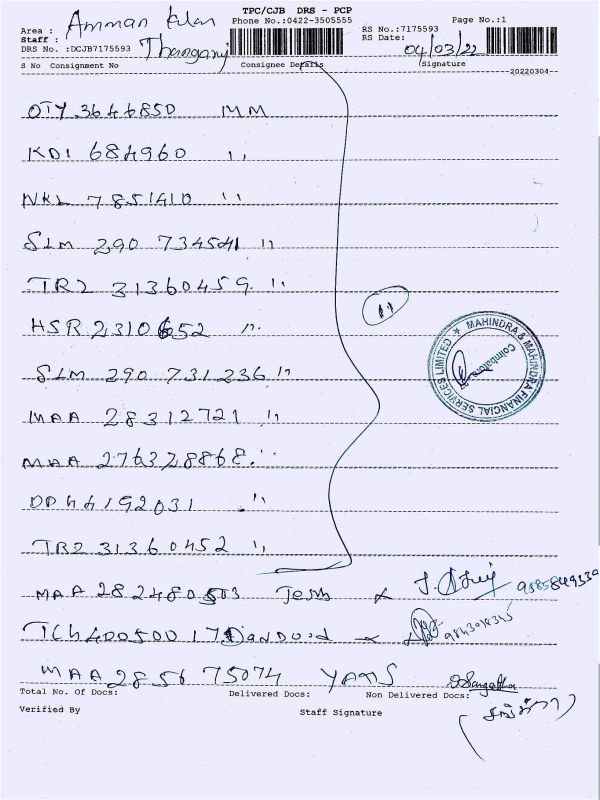 TPC/CJB DRS - PCP
Area : Amman Kulam Phone No.:0422-3505555 RS No.:7175593 Page No.:1
Staff : Thangaraj RS Date: 04/03/22
DRS No. :DCJB7175593
S No Consignment No Consignee Details Signature 20220304
OTY 3646850 MM
KDI 684960 ''
NKL 7851410 ''
SLM 290 734541 ''
TR2 31360459 ''
HSR 2310652 ''
11
SLM 290 731236 ''
MAHINDRA & MAHINDRA FINANCIAL SERVICES LIMITED ★
Coimbatore
MAA 28312721 ''
MAA 276328868 ''
DD 44192031 ''
TR2 31360452 ''
MAA 282480503
TCH 400500171
MAA 285675074
Total No. Of Docs: Delivered Docs: Non Delivered Docs:
Verified By Staff Signature